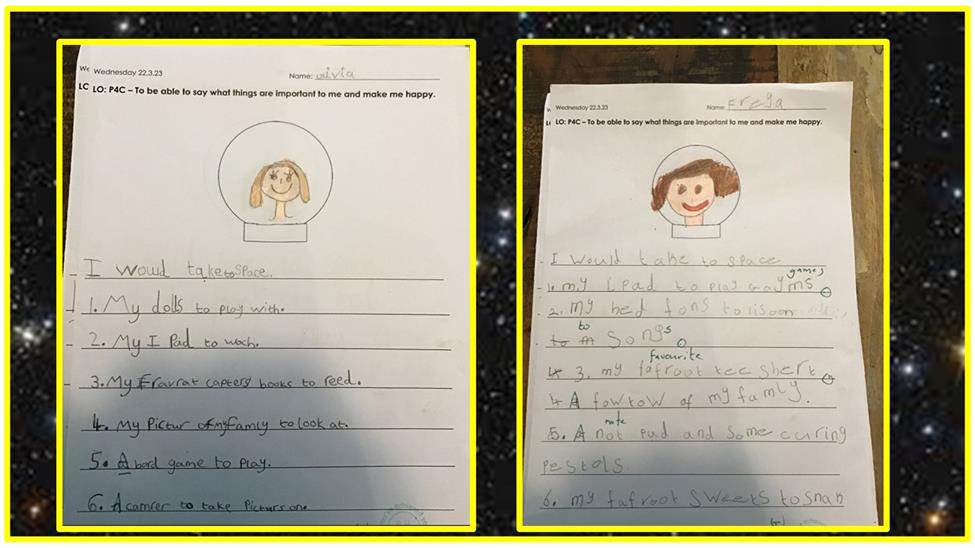 Wednesday 22.3.23
Name: olivia
LO: P4C – To be able to say what things are important to me and make me happy.
I woud take to space.
1. My dolls to play with.
2. My I Pad to woch.
3. My Fravrat captery books to reed.
4. My Pictur of my Famly to look at.
5. A bord game to play.
6. A camrer to take Picturs one.
Wednesday 22.3.23
Name: Freya
LO: P4C – To be able to say what things are important to me and make me happy.
I would take to space
games
1. my ipad to play gayms
2. my hed fons to lisoon
to songs
favourite
3. my fafroot tee shert
4. A fowtow of my famly.
note
5. A not pad and some curing
pestols.
6. my fafroot sweets to snan